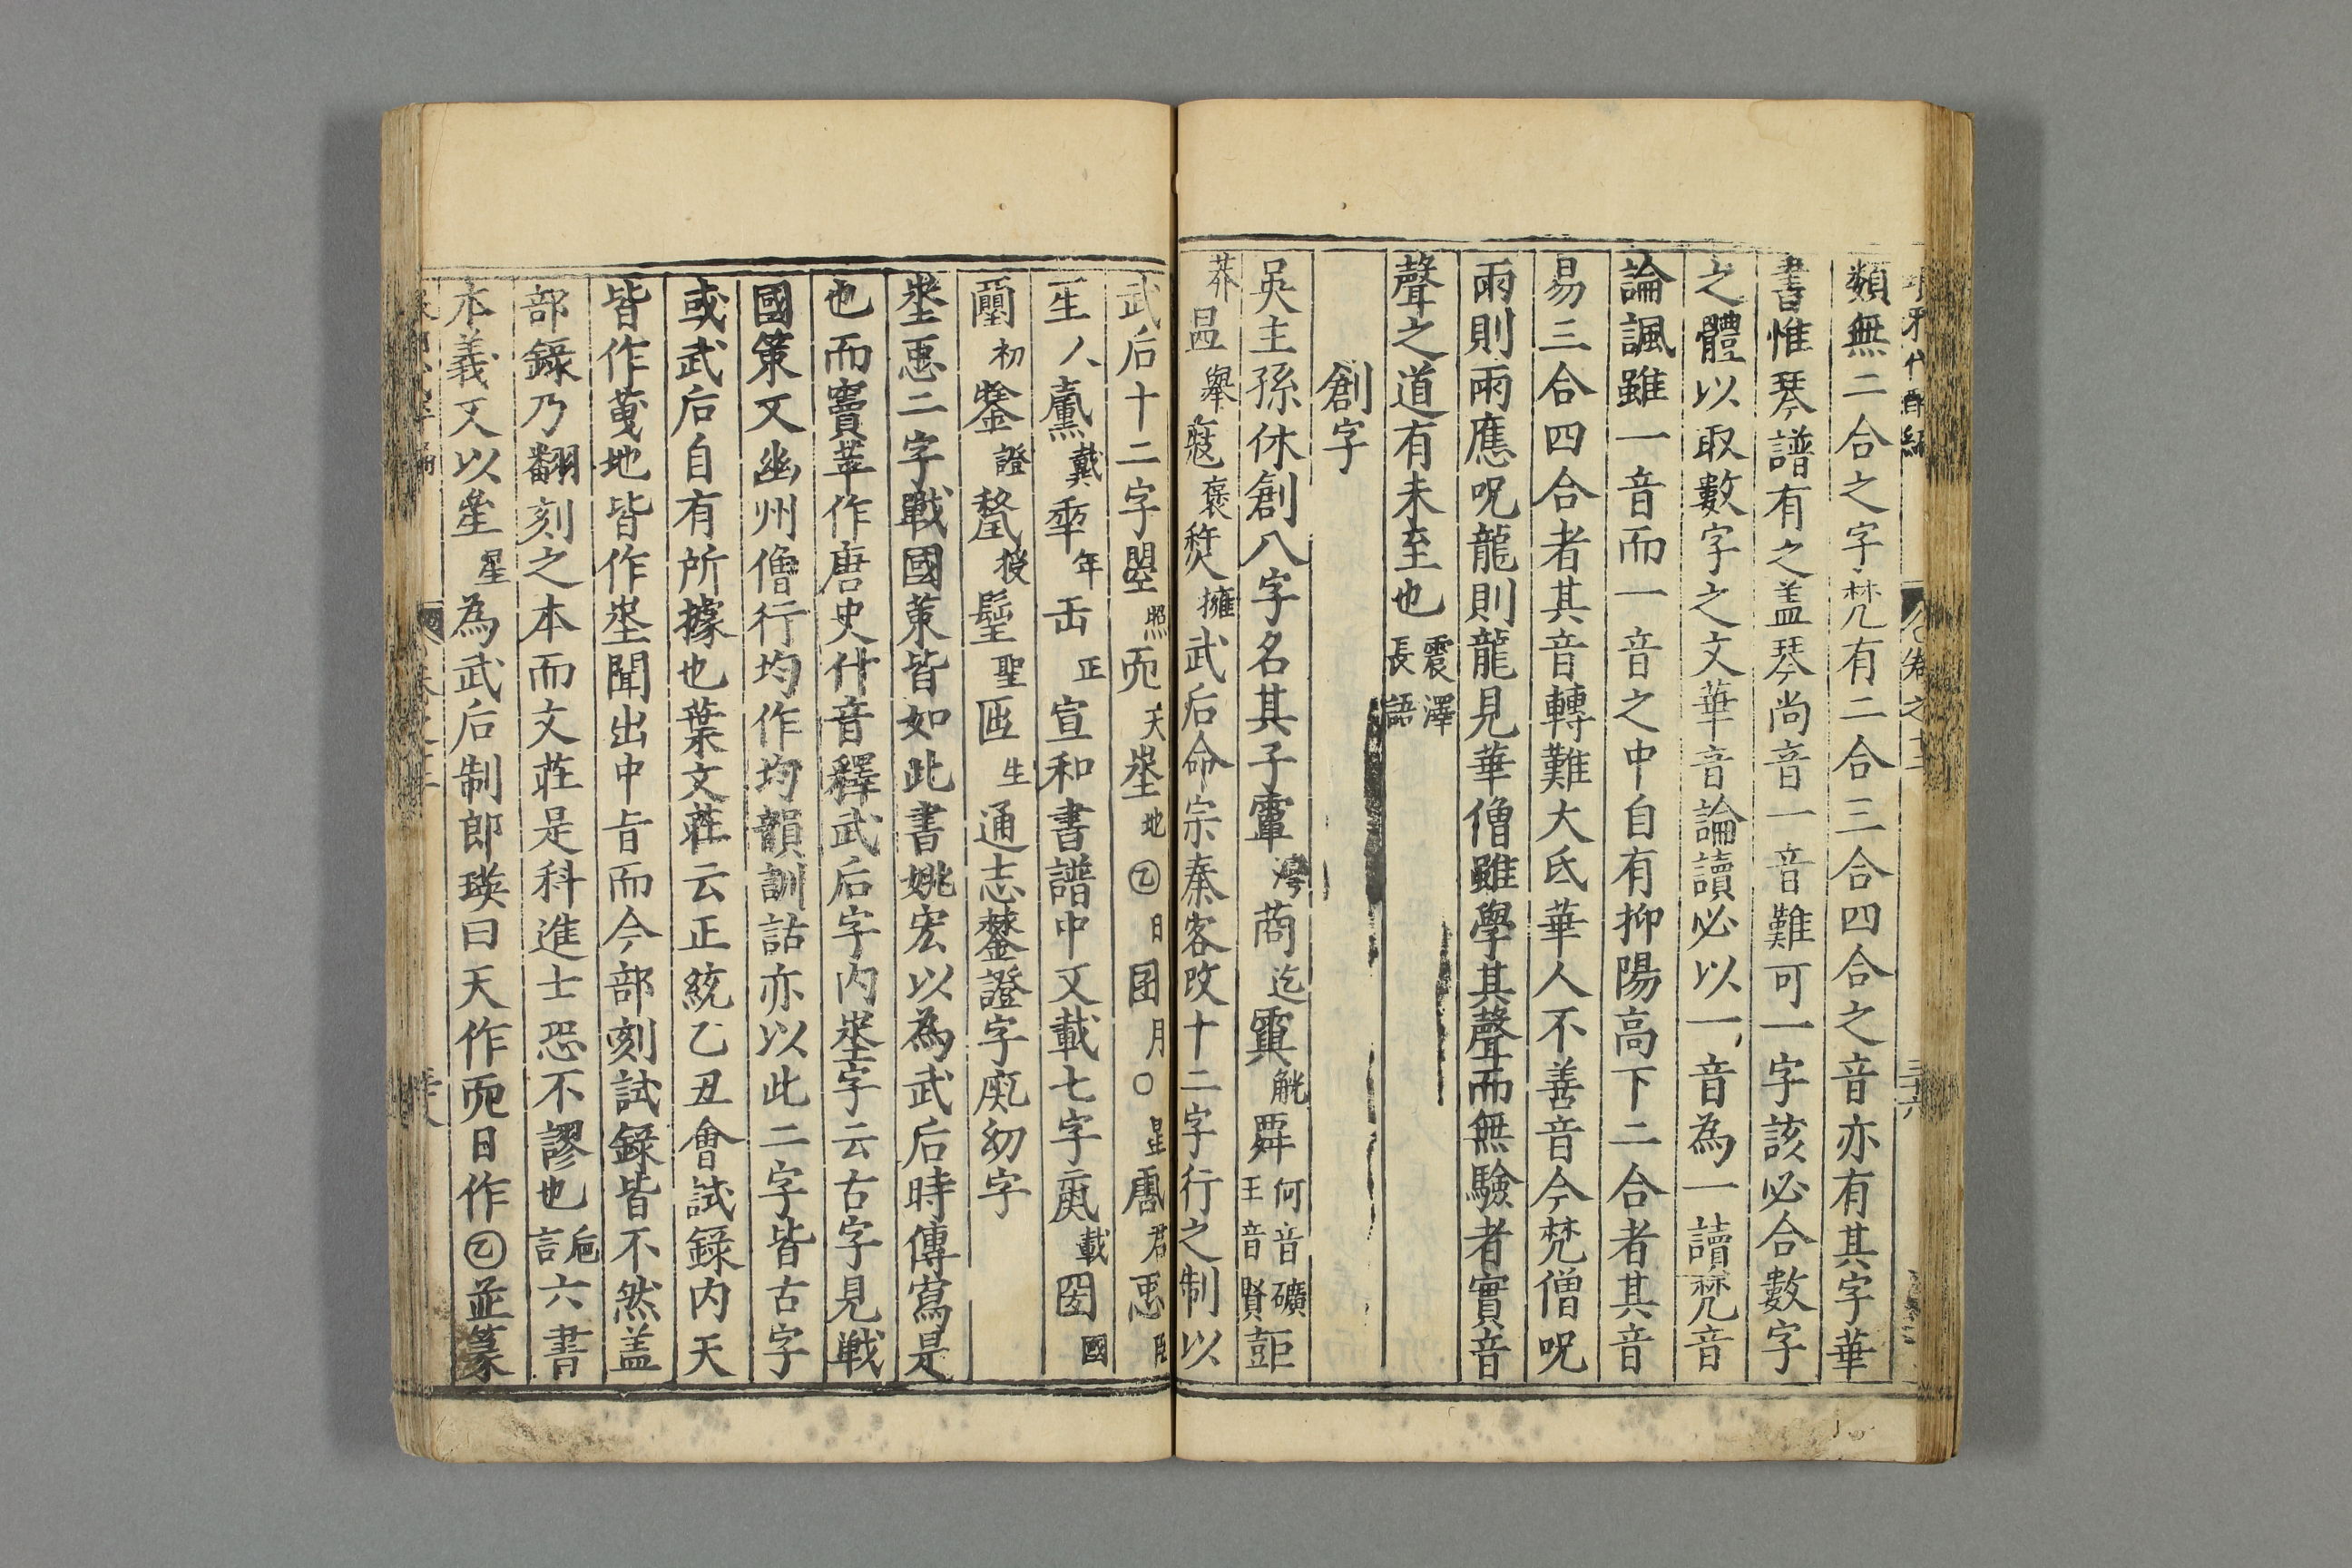 類無二合之字梵有二合三合四合之音亦有其字華
書惟琴譜有之盖琴尚音一音難可一字該必合數字
之體以取數字之文華音論讀必以一音為一讀梵音
論諷雖一音而一音之中自有抑陽高下二合者其音
易三合四合者其音轉難大氐華人不善音今梵僧呪
雨則雨應呪龍則龍見華僧雖學其聲而無驗者實音
聲之道有未至也震澤長語
創字
吳主孫休創八字名其子𩅦灣𦯶迄𩃙觥㢲何音礥王音賢𧯡
莽昷舉寇褒㷏擁武后命宗秦客改十二字行之制以
武后十二字曌照𠀑天埊地㔔日囝月〇星𢘑君𢘗臣
𤯔人𡕀戴𠡦年𠙺正宣和書譜中又載七字𢈻載圀國
𡔈初𨭻證𥠢授𨲢聖匨生通志𨭻證字𢈻幼字
埊𢘗二字戰國策皆如此書姚宏以為武后時傳寫是
也而竇苹作唐史什音釋武后字内埊字云古字見戰
國策又幽州僧行均作均韻訓詁亦以此二字皆古字
或武后自有所據也葉文莊云正統乙丑會試錄内天
皆作𠑺地皆作埊聞出中旨而今部刻試錄皆不然盖
部錄乃翻刻之本而文莊是科進士恐不謬也巵言六書
本義又以𤯚星為武后制郎瑛曰天作𠀑日作㔔並篆